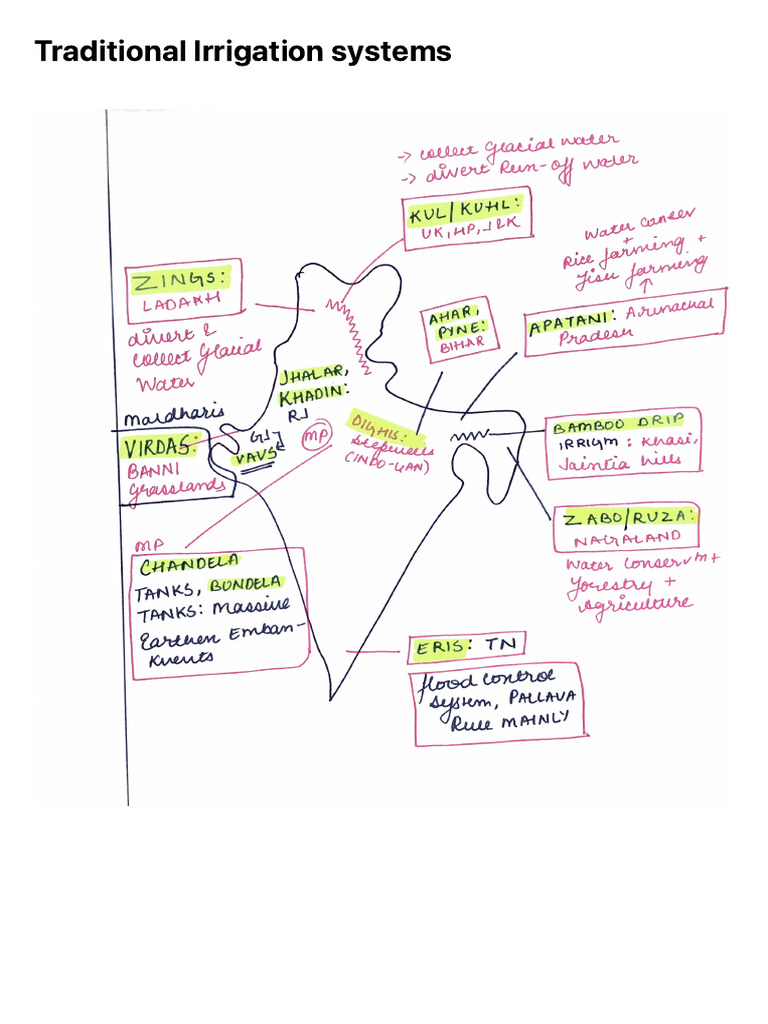 Traditional Irrigation systems
→ collect Glacial water
→ divert Run-off water
KUL/KUHL:
UK, HP, J&K
Water conser
+
Rice farming +
Fish farming
↑
APATANI: Arunachal
Pradesh
ZINGS:
LADAKH
divert &
collect Glacial
Water
AHAR,
PYNE:
BIHAR
JHALAR,
KHADIN:
RJ
maldharis
VIRDAS:
BANNI
Grasslands
GJ
VAVS
MP
DIGHIS:
Stepwells
BAMBOO DRIP
IRRIGM: Khasi,
Jaintia hills
ZABO/RUZA:
NAGALAND
Water conservm+
Forestry +
Agriculture
MP
CHANDELA
TANKS, BUNDELA
TANKS: Massive
Earthen Emban-
kments
ERIS: TN
flood control
system, PALLAVA
Rule MAINLY